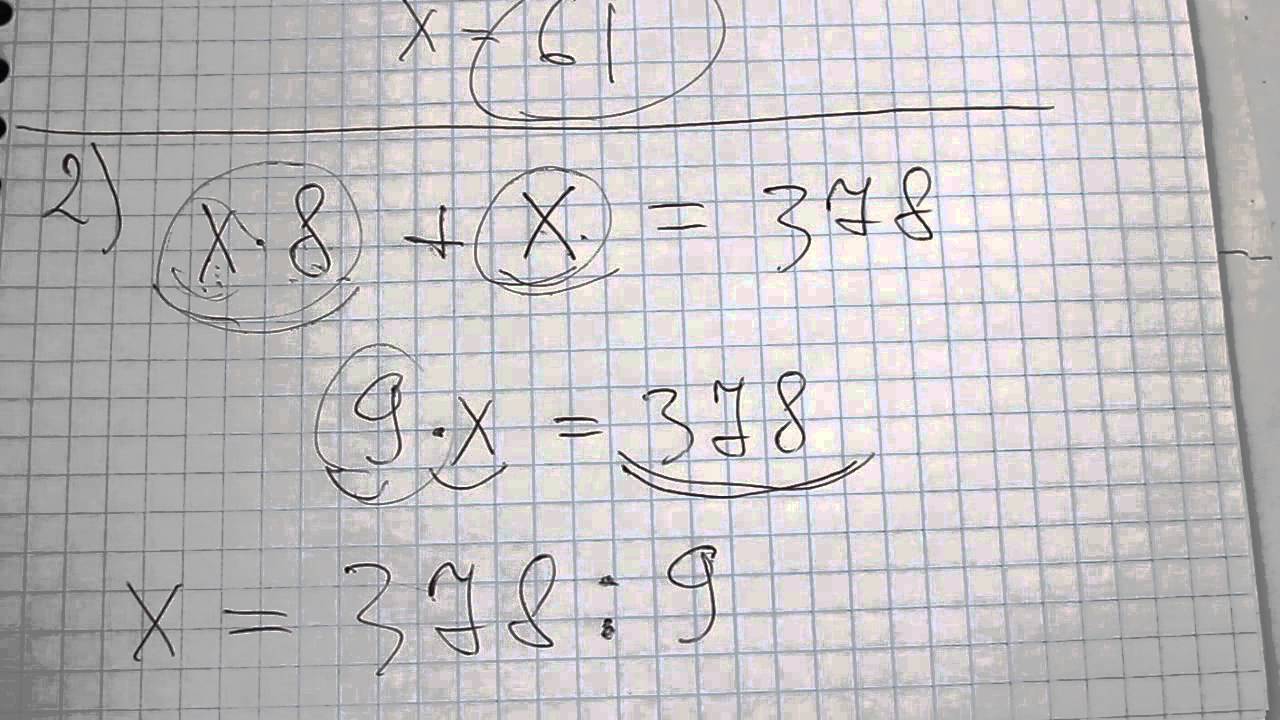 x = 61
2) x · 8 + x = 378
9 · x = 378
x = 378 : 9